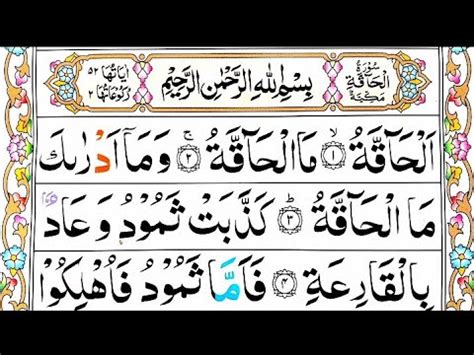 سُوْرَةُ الْحَآقَّةِ مَكِّيَّةٌ
بِسْمِ اللهِ الرَّحْمٰنِ الرَّحِيْمِ
اٰيَاتُهَا ٥٢ رُكُوْعَاتُهَا ٢
اَلْحَآقَّةُ ۙ ۝١ مَا الْحَآقَّةُ ۚ ۝٢ وَمَاۤ اَدْرٰىكَ
مَا الْحَآقَّةُ ؕ ۝٣ كَذَّبَتْ ثَمُوْدُ وَ عَادٌۢ
بِالْقَارِعَةِ ۝٤ فَاَمَّا ثَمُوْدُ فَاُهْلِكُوْا